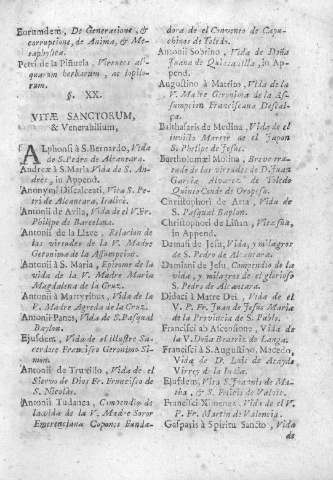 Eorundem, De Generatione, &
corruptione, de Anima, & Me-
taphysica.
Petri de la Piñuela, Virentes ali-
quarum herbarum, ac lapillo-
rum.
§. XX.
VITÆ SANCTORUM,
& Venerabilium,
Alphonsi à S. Bernardo, Vida
de S. Pedro de Alcantara.
Andreæ à S. Maria, Vida de S. An-
drés, in Append.
Anonymi Discalceati, Vita S. Pe-
tri de Alcantara, Italicè.
Antonii de Avila, Vida de el V. Fr.
Philipe de Barcelona.
Antonii de la Llave, Relacion de
las virtudes de la V. Madre
Geronima de la Assumpcion.
Antonii à S. Maria, Epitome de la
vida de la V. Madre Maria
Magdalena de la Cruz.
Antonii à Martyribus, Vida de la
V. Madre Agreda de la Cruz.
Antonii Panes, Vida de S. Pasqual
Baylon.
Ejusdem, Vida de el Illustre Sa-
cerdote Francisco Geronimo Si-
mon.
Antonii de Truxillo, Vida de el
Siervo de Dios Fr. Francisco de
S. Nicolas.
Antonii Tudanca, Compendio de
la vida de la V. Madre Soror
Emerenciana Copones Funda-
dora de el Convento de Capu-
chinas de Toledo.
Antonii Sobrino, Vida de Doña
Juana de Quincasilla, in Ap-
pend.
Augustino à Matrito, Vida de la
V. Madre Geronima de la As-
sumpcion Franciscana Descal-
ça.
Balthasaris de Medina, Vida de el
invicto Martyr de el Japon
S. Phelipe de Jesus.
Bartholomæi Molina, Breve tra-
tado de las virtudes de D. Juan
Garcia Alvarez de Toledo
Quinto Conde de Oropesa.
Christophori de Arta, Vida de
S. Pasqual Baylon.
Christophori de Lisan, Vita sua,
in Append.
Damasi de Jesu, Vida, y milagros
de S. Pedro de Alcantara.
Damiani de Jesu, Compendio de la
vida, y milagros de el glorioso
S. Pedro de Alcantara.
Didaci à Matre Dei, Vida de el
V. P. Fr. Juan de Jesus Maria
de la Provincia de S. Pablo.
Francisci ab Ascensione, Vida de
la V. Doña Beatriz de Langa.
Francisci à S. Augustino, Macedo,
Vida de D. Luis de Atayde
Virrey de la India.
Ejusdem, Vita S. Joannis de Ma-
tha, & S. Felicis de Valois.
Francisci Ximenez, Vida de el V.
P. Fr. Martin de Valencia.
Gasparis à Spiritu Sancto, Vida
de